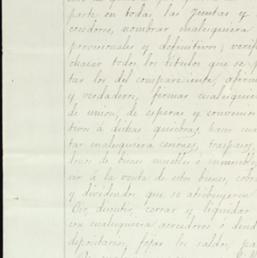 parte en todas las Juntas y
ceedores, nombrar cualesquiera
provisionales y definitivos, verifi
chazar todos los titulos que se p
tar los del compareciente, afirm
y verdaderos, firmar cualesquie
de union, de esperas y convenio
tivos á dichas quiebras, hacer cua
tar cualesquiera cesiones, traspasos
bienes muebles ó inmuebles
cir á la venta de estos bienes, cobra
y dividendos que se atribuyeren
Oir, discutir, cerrar y liquidar
con cualesquiera acreedores ó deud
depositarios, fijar los saldos, pa